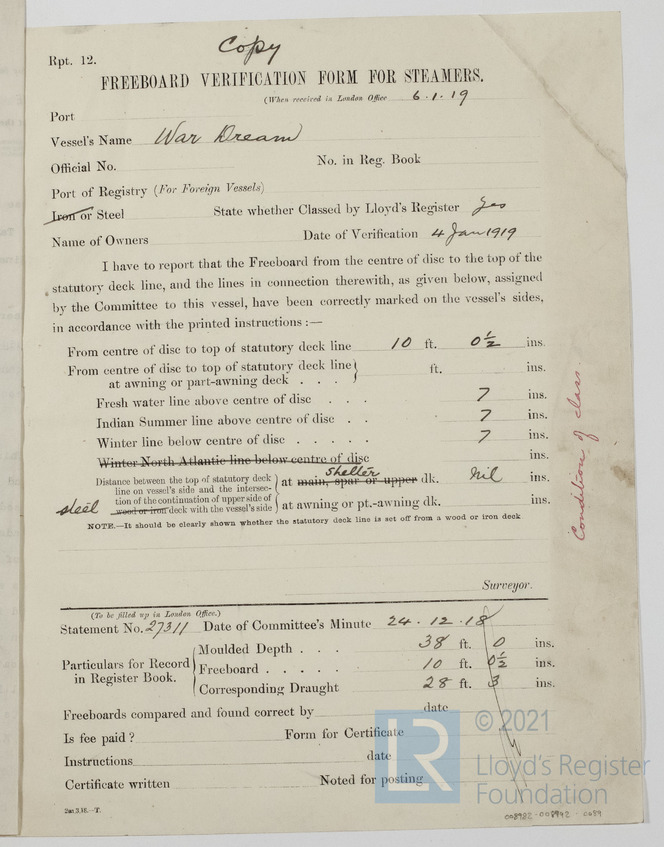 Copy
Rpt. 12.
FREEBOARD VERIFICATION FORM FOR STEAMERS.
(When received in London Office 6.1.19
Port
Vessel's Name War Dream
Official No. No. in Reg. Book
Port of Registry (For Foreign Vessels)
Iron or Steel State whether Classed by Lloyd's Register Yes
Name of Owners Date of Verification 4 Jan 1919
I have to report that the Freeboard from the centre of disc to the top of the
statutory deck line, and the lines in connection therewith, as given below, assigned
by the Committee to this vessel, have been correctly marked on the vessel's sides,
in accordance with the printed instructions :—
From centre of disc to top of statutory deck line 10 ft. 0½ ins.
From centre of disc to top of statutory deck line
at awning or part-awning deck . . . ft. ins.
Fresh water line above centre of disc . . . 7 ins.
Indian Summer line above centre of disc . . 7 ins.
Winter line below centre of disc . . . . . 7 ins.
Winter North Atlantic line below centre of disc ins.
Distance between the top of statutory deck
line on vessel's side and the intersec-
tion of the continuation of upper side of
steel wood or iron deck with the vessel's side
shelter
at main, spar or upper dk. Nil ins.
at awning or pt.-awning dk. ins.
NOTE.—It should be clearly shown whether the statutory deck line is set off from a wood or iron deck
Condition of class.
Surveyor.
(To be filled up in London Office.)
Statement No. 27311 Date of Committee's Minute 24.12.18
Particulars for Record
in Register Book.
Moulded Depth . . . 38 ft. 0 ins.
Freeboard . . . . . 10 ft. 0½ ins.
Corresponding Draught 28 ft. 3 ins.
Freeboards compared and found correct by date
Is fee paid ? Form for Certificate
Instructions date
Certificate written Noted for posting
2m.3.18.—T.
LR
© 2021
Lloyd's Register
Foundation
008982-008992-0089